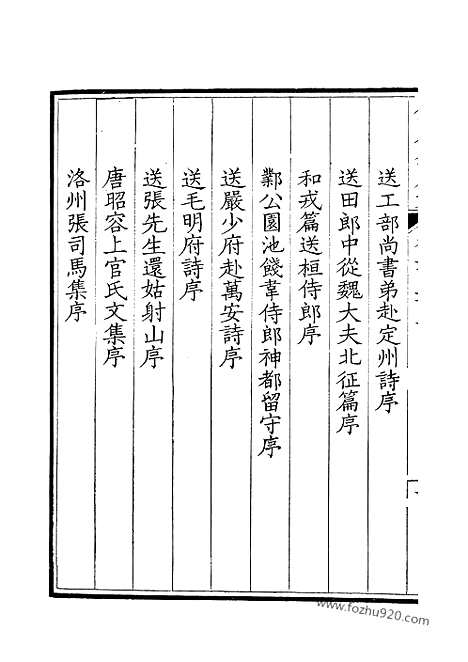 送工部尚書弟赴定州詩序
送田郎中從魏大夫北征篇序
和戎篇送桓侍郎序
鄴公園池餞韋侍郎神都留守序
送嚴少府赴萬安詩序
送毛明府詩序
送張先生還姑射山序
唐昭容上官氏文集序
洛州張司馬集序
www.fozhu920.com